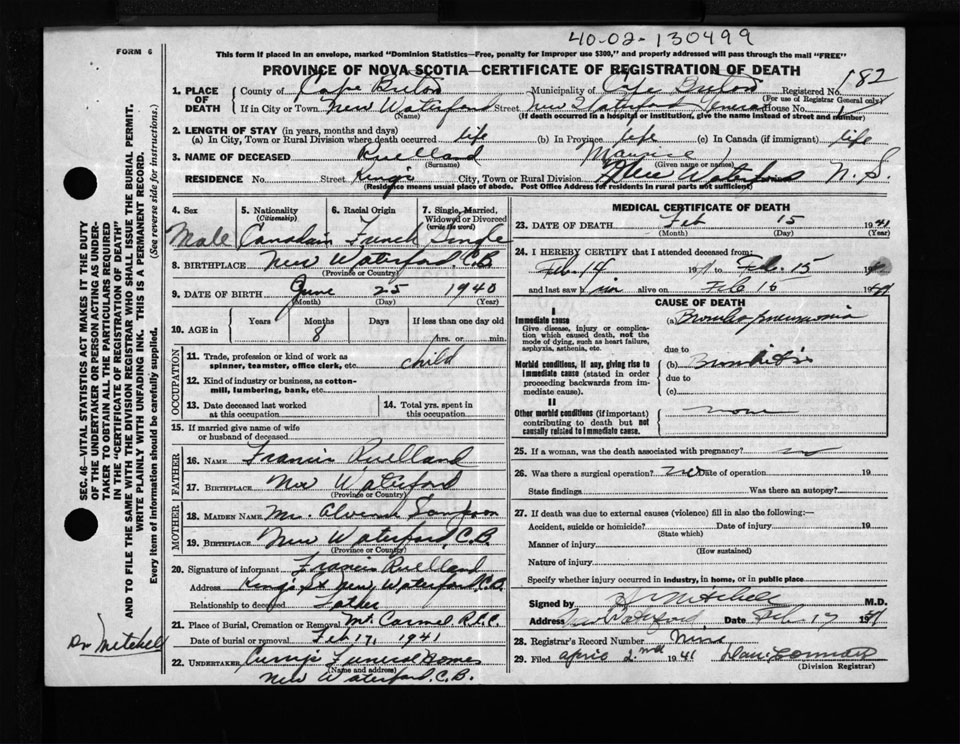 40-02-130499
FORM 6
This form if placed in an envelope, marked "Dominion Statistics—Free, penalty for improper use $300," and properly addressed will pass through the mail "FREE"
PROVINCE OF NOVA SCOTIA—CERTIFICATE OF REGISTRATION OF DEATH
182
1. PLACE OF DEATH County of Cape Breton Municipality of Cape Breton Registered No.
(For use of Registrar General only)
If in City or Town New Waterford Street New Waterford General House No.
(Name) (If death occurred in a hospital or institution, give the name instead of street and number)
2. LENGTH OF STAY (in years, months and days)
(a) In City, Town or Rural Division where death occurred life (b) In Province life (c) In Canada (if immigrant) life
3. NAME OF DECEASED Ruelland Maurice
(Surname) (Given name or names)
RESIDENCE No. Street King's City, Town or Rural Division New Waterford N. S.
(Residence means usual place of abode. Post Office Address for residents in rural parts not sufficient)
4. Sex 5. Nationality (Citizenship) 6. Racial Origin 7. Single, Married, Widowed or Divorced (write the word)
Male Canadain French single
8. BIRTHPLACE New Waterford, C.B.
(Province or Country)
9. DATE OF BIRTH June 25 1940
(Month) (Day) (Year)
10. AGE in Years Months Days If less than one day old
8 hrs. or min.
OCCUPATION
11. Trade, profession or kind of work as spinner, teamster, office clerk, etc. child
12. Kind of industry or business, as cotton-mill, lumbering, bank, etc.
13. Date deceased last worked at this occupation 14. Total yrs. spent in this occupation
15. If married give name of wife or husband of deceased
FATHER
16. NAME Francis Ruelland
17. BIRTHPLACE New Waterford
(Province or Country)
MOTHER
18. MAIDEN NAME Alvena Sampson
19. BIRTHPLACE New Waterford, C.B.
(Province or Country)
20. Signature of informant Francis Ruelland
Address King's St New Waterford C.B.
Relationship to deceased Father
21. Place of Burial, Cremation or Removal Mt. Carmel R.C.C.
Date of burial or removal Feb 17, 1941
22. UNDERTAKER Funeral Home
(Name and address)
New Waterford, C.B.
MEDICAL CERTIFICATE OF DEATH
23. DATE OF DEATH Feb 15 1941
(Month) (Day) (Year)
24. I HEREBY CERTIFY that I attended deceased from:
Feb. 14 Feb. 15
and last saw him alive on Feb 15 1941
CAUSE OF DEATH
I
Immediate cause (a) Broncho pneumonia
Give disease, injury or complication which caused death, not the mode of dying, such as heart failure, asphyxia, asthenia, etc.
due to
Morbid conditions, if any, giving rise to immediate cause (stated in order proceeding backwards from immediate cause).
(b) Bronchitis
due to
(c)
II
Other morbid conditions (if important) contributing to death but not causally related to immediate cause. none
25. If a woman, was the death associated with pregnancy?
26. Was there a surgical operation? no Date of operation 19
State findings Was there an autopsy?
27. If death was due to external causes (violence) fill in also the following:—
Accident, suicide or homicide? Date of injury 19
(State which)
Manner of injury
(How sustained)
Nature of injury
Specify whether injury occurred in industry, in home, or in public place
Signed by Mitchell M.D.
Address New Waterford Date Feb 17 1941
28. Registrar's Record Number Nine
29. Filed April 2nd 1941
(Division Registrar)
SEC. 46—VITAL STATISTICS ACT MAKES IT THE DUTY
OF THE UNDERTAKER OR PERSON ACTING AS UNDER-
TAKER TO OBTAIN ALL THE PARTICULARS REQUIRED
IN THE "CERTIFICATE OF REGISTRATION OF DEATH"
AND TO FILE THE SAME WITH THE DIVISION REGISTRAR WHO SHALL ISSUE THE BURIAL PERMIT.
WRITE PLAINLY WITH UNFADING INK. THIS IS A PERMANENT RECORD.
Every item of information should be carefully supplied. (See reverse side for instructions.)
Dr Mitchell